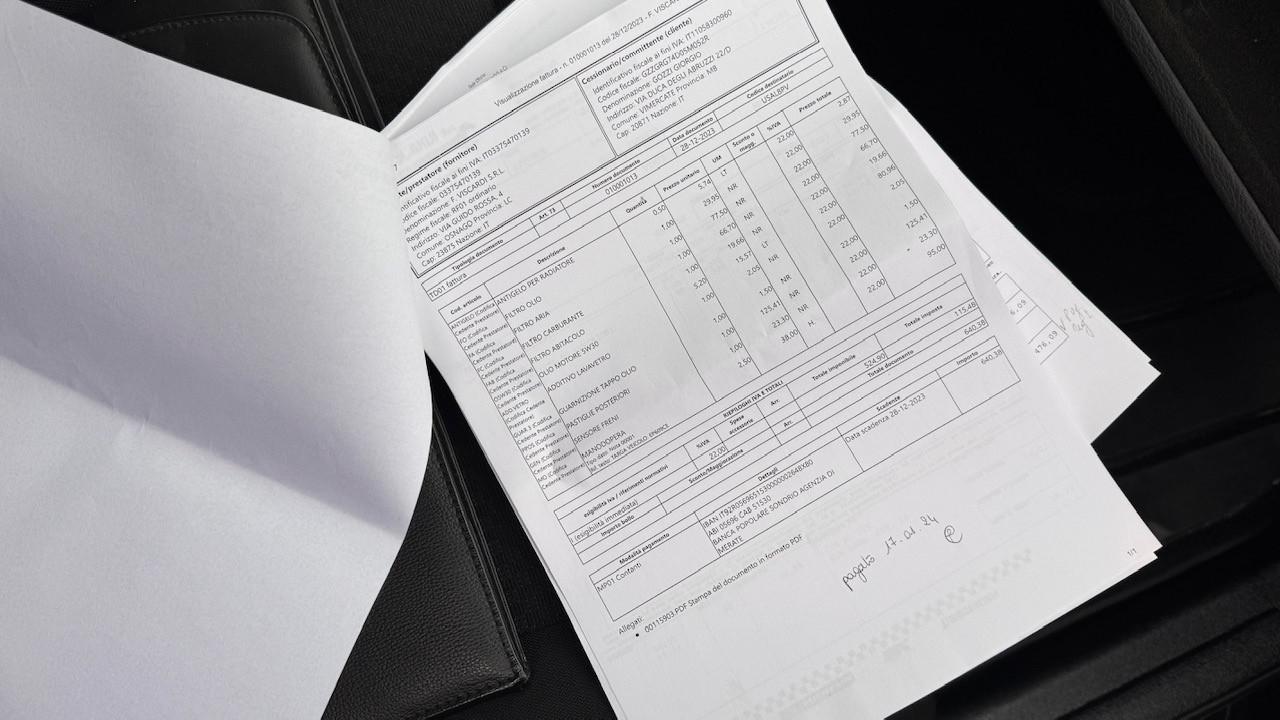 Visualizzazione fattura - n. 010001013 del 28/12/2023 - F. VISCAR
te/prestatore (fornitore)
entificativo fiscale ai fini IVA: IT03375470139
odice fiscale: 03375470139
enominazione: F. VISCARDI S.R.L.
Regime fiscale: RF01 ordinario
Indirizzo: VIA GUIDO ROSSA, 4
Comune: OSNAGO Provincia: LC
Cap: 23875 Nazione: IT
Cessionario/committente (cliente)
Identificativo fiscale ai fini IVA: IT11058300960
Codice fiscale: GZZGRG74D05M052R
Denominazione: GOZZI GIORGIO
Indirizzo: VIA DUCA DEGLI ABRUZZI 22/D
Comune: VIMERCATE Provincia: MB
Cap: 20871 Nazione: IT
Tipologia documento Art. 73 Numero documento Data documento Codice destinatario
TD01 fattura 010001013 28-12-2023 USAL8PV
Cod. articolo Descrizione Quantità Prezzo unitario UM Sconto o magg. %IVA Prezzo totale
ANTIGELO (Codifica Cedente Prestatore) ANTIGELO PER RADIATORE 0,50 5,74 LT 22,00 2,87
FO (Codifica Cedente Prestatore) FILTRO OLIO 1,00 29,95 NR 22,00 29,95
FA (Codifica Cedente Prestatore) FILTRO ARIA 1,00 77,50 NR 22,00 77,50
FC (Codifica Cedente Prestatore) FILTRO CARBURANTE 1,00 66,70 NR 22,00 66,70
FAB (Codifica Cedente Prestatore) FILTRO ABITACOLO 1,00 19,66 NR 22,00 19,66
O5W30 (Codifica Cedente Prestatore) OLIO MOTORE 5W30 5,20 15,57 LT 22,00 80,96
ADD.VETRO (Codifica Cedente Prestatore) ADDITIVO LAVAVETRO 1,00 2,05 NR 22,00 2,05
GUAR.3 (Codifica Cedente Prestatore) GUARNIZIONE TAPPO OLIO 1,00 1,50 NR 22,00 1,50
PPOS (Codifica Cedente Prestatore) PASTIGLIE POSTERIORI 1,00 125,41 NR 22,00 125,41
(Codifica Cedente Prestatore) SENSORE FRENI 1,00 23,30 NR 22,00 23,30
MO (Codifica Cedente Prestatore) MANODOPERA 2,50 38,00 H. 22,00 95,00
Tipo dato: Nota 00001
Rif. testo: TARGA VEICOLO:
RIEPILOGHI IVA E TOTALI
esigibilità iva / riferimenti normativi %IVA Spese accessorie Arr. Totale imponibile Totale imposta
I (esigibilità immediata) 22,00 524,90 115,48
Importo bollo Sconto/Maggiorazione Arr. Totale documento
640,38
Modalità pagamento Dettagli Scadenze Importo
MP01 Contanti
IBAN IT92R0569651530000002648X80
ABI 05696 CAB 51530
BANCA POPOLARE SONDRIO AGENZIA DI
MERATE
Data scadenza 28-12-2023 640,38
Allegati:
• 00115903.PDF Stampa del documento in formato PDF
pagato 17.01.24
1/1
6,09
476,09